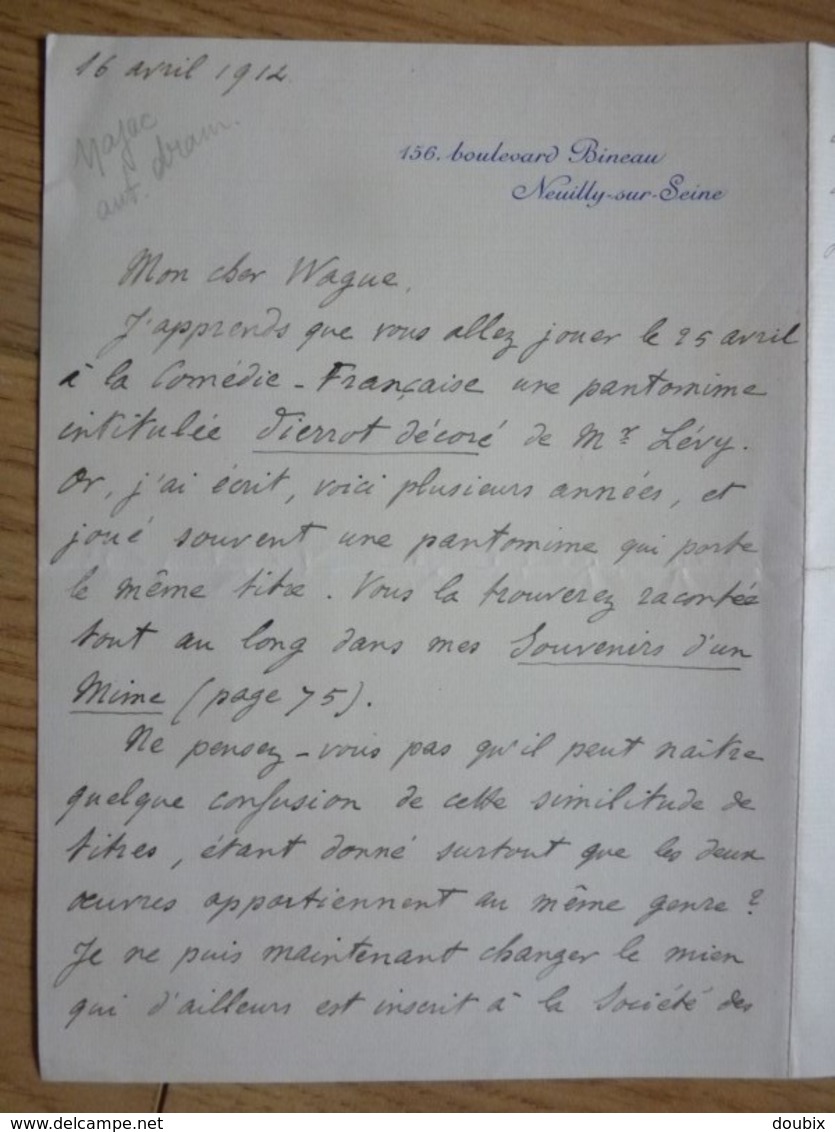 16 avril 1912
Najac
aut. dram.
156. boulevard Bineau
Neuilly-sur-Seine
Mon cher Wague,
J'apprends que vous allez jouer le 25 avril
à la Comédie-Française une pantomime
intitulée Pierrot décoré de Mr Lévy.
Or, j'ai écrit, voici plusieurs années, et
joué souvent une pantomime qui porte
le même titre. Vous la trouverez racontée
tout au long dans mes Souvenirs d'un
Mime (page 75).
Ne pensez-vous pas qu'il peut naître
quelque confusion de cette similitude de
titres, étant donné surtout que les deux
œuvres appartiennent au même genre ?
Je ne puis maintenant changer le mien
qui d'ailleurs est inscrit à la Société des
Copyright: doubix
delcampe.net